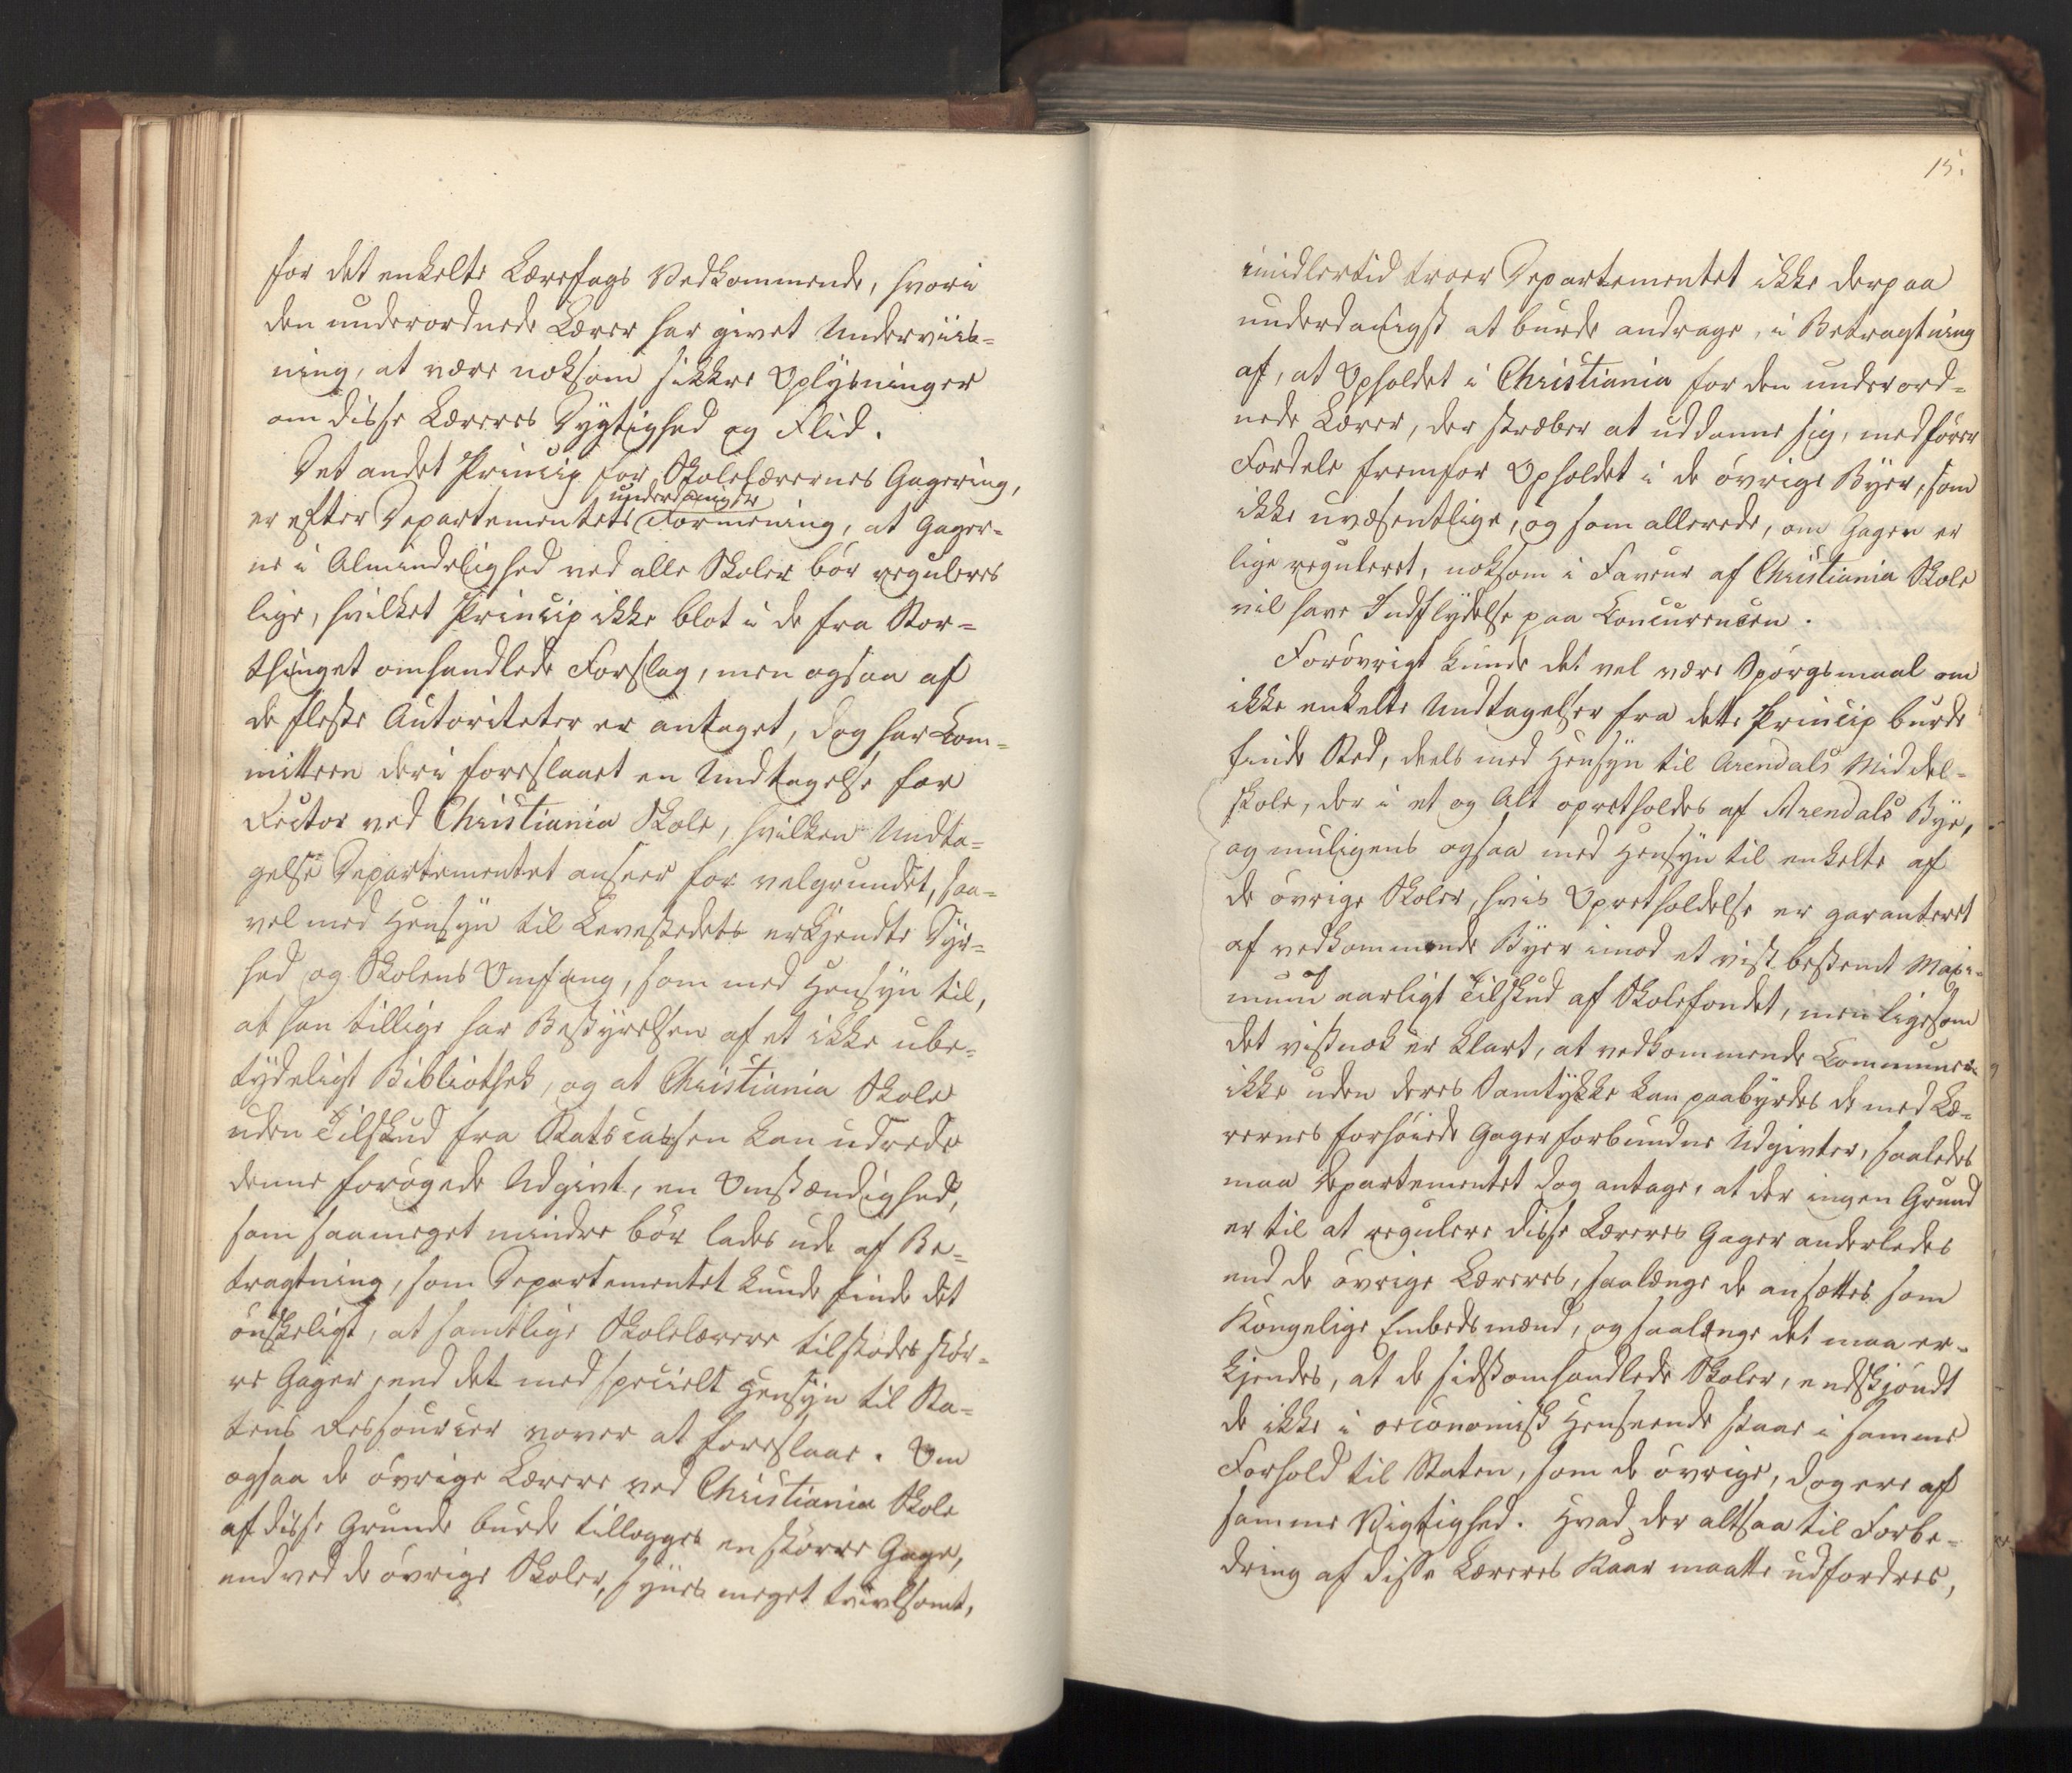 for det enkelte Lærefags Vedkommende, hvori
den underordnede Lærer har givet Underviis-
ning, at være noksom sikkre Oplysninger
om disse Læreres Dygtighed og Flid.
Det andet Princip for Skolelærernes Gagering,
underdanigste
er efter Departementets Formening, at Gager-
ne i Almindelighed ved alle Skoler bör reguleres
lige, hvilket Princip ikke blot i de fra Stor-
thinget omhandlede Forslag, men ogsaa af
de fleste Autoriteter er antaget, dog har Com-
mitteen deri foreslaaet en Undtagelse for
Rector ved Christiania Skole, hvilken Undta-
gelse Departementet anseer for velgrundet, saa-
vel med Hensyn til Levestedets erkjendte Dyr-
hed og Skolens Omfang, som med Hensyn til,
at han tillige har Bestyrelsen af et ikke ube-
tydeligt Bibliothek, og at Christiania Skole
uden Tilskud fra Statscassen kan udrede
denne forögede Udgivt, en Omstændighed,
som saameget mindre bör lades ude af Be-
tragtning, som Departementet kunde finde det
önskeligt, at samtlige Skolelærere tilstodes stör-
re Gager, end det med specielt Hensyn til Sta-
tens Ressourcer vover at foreslaae. Om
ogsaa de övrige Lærere ved Christiania Skole
af disse Grunde burde tillægges en större Gage,
end ved de övrige Skoler, synes meget tvivlsomt,
15.
imidlertid troer Departementet ikke derpaa
underdanigst at burde andrage, i Betragtning
af, at Opholdet i Christiania for den underord-
nede Lærer, der stræber at uddanne sig, medförer
Fordele fremfor Opholdet i de övrige Byer, som
ikke uvæsentlige, og som allerede, om Gagen er
lige reguleret, noksom i Faveur af Christiania Skole
vil have Indflydelse paa Concurencen.
Forövrigt kunde det vel være Spörgsmaal om
ikke enkelte Undtagelser fra dette Princip burde
finde Sted, deels med Hensyn til Arendals Middel-
skole, der i et og Alt opretholdes af Arendals Bye,
og muligens ogsaa med Hensyn til enkelte af
de övrige Skoler, hvis Opretholdelse er garanteret
af vedkommende Byer imod et vist bestemt Maxi-
mum af aarligt Tilskud af Skolefondet, men ligesom
det vistnok er klart, at vedkommende Communer
ikke uden deres Samtykke kan paabyrdes de med Læ-
rernes forhöiede Gager forbundne Udgivter, saaledes
maa Departementet dog antage, at der ingen Grund
er til at regulere disse Læreres Gager anderledes
end de övrige Læreres, saalænge de ansættes som
Kongelige Embedsmænd, og saalænge det maa er-
kjendes, at de sidstomhandlede Skoler, endskjöndt
de ikke i oeconomisk Henseende staae i samme
Forhold til Staten, som de övrige, dog ere af
samme Vigtighed. Hvad der altsaa til Forbe-
dring af disse Læreres Kaar maatte udfordres,